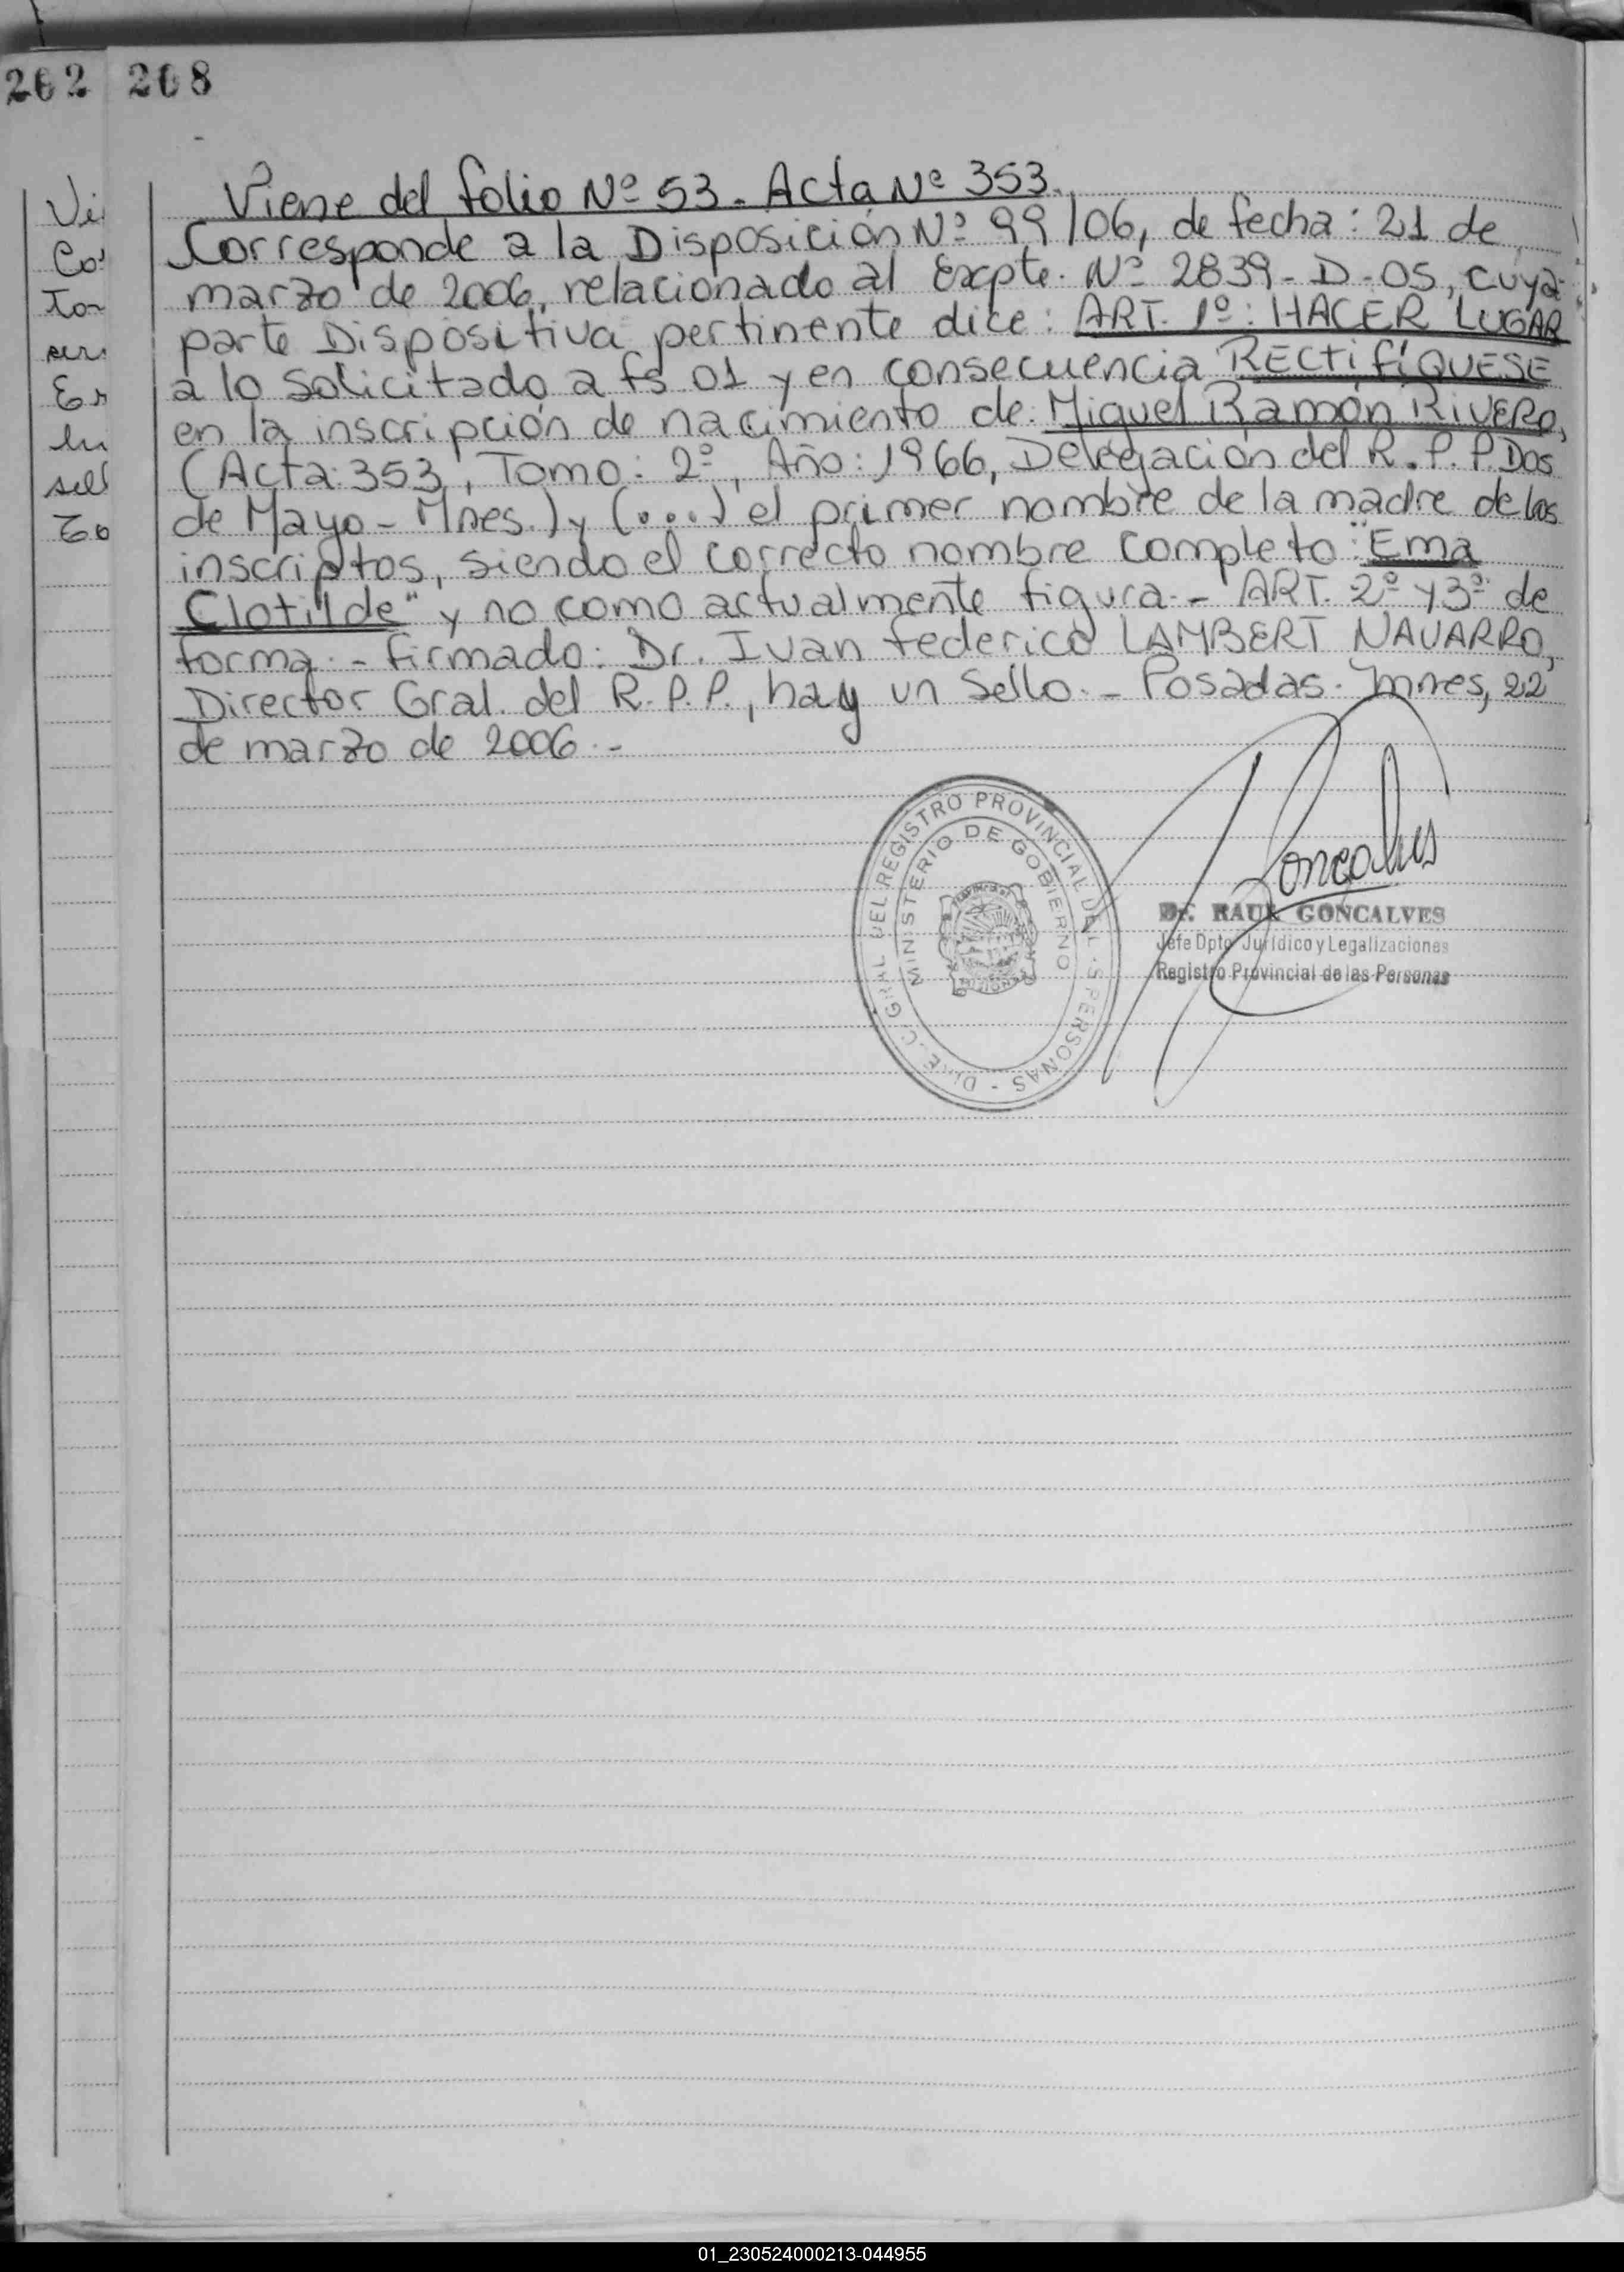 262 208
Viene del folio Nº 53. Acta Nº 353.
Corresponde a la Disposición Nº 99/06, de fecha: 21 de
marzo de 2006, relacionado al Expte. Nº 2839-D-05, cuya
parte Dispositiva pertinente dice: ART. 1º: HACER LUGAR
a lo solicitado a fs 01 y en consecuencia RECTIFÍQUESE
en la inscripción de nacimiento de: Miguel Ramón RIVERO,
(Acta: 353, Tomo: 2º, Año: 1966, Delegación del R.P.P. Dos
de Mayo - Mnes.) y (...) el primer nombre de la madre de los
inscriptos, siendo el correcto nombre completo: "Ema
Clotilde" y no como actualmente figura.- ART. 2º y 3º de
forma.- Firmado: Dr. Ivan Federico LAMBERT NAVARRO,
Director Gral. del R.P.P., hay un Sello.- Posadas. Mnes, 22
de marzo de 2006.-
GRAL DEL REGISTRO PROVINCIAL DE L S PERSONAS -
MINISTERIO DE GOBIERNO
Goncalves
Dr. RAUL GONCALVES
Jefe Dpto Jurídico y Legalizaciones
Registro Provincial de las Personas
Vi
Co
To
Er
sell
01_230524000213-044955